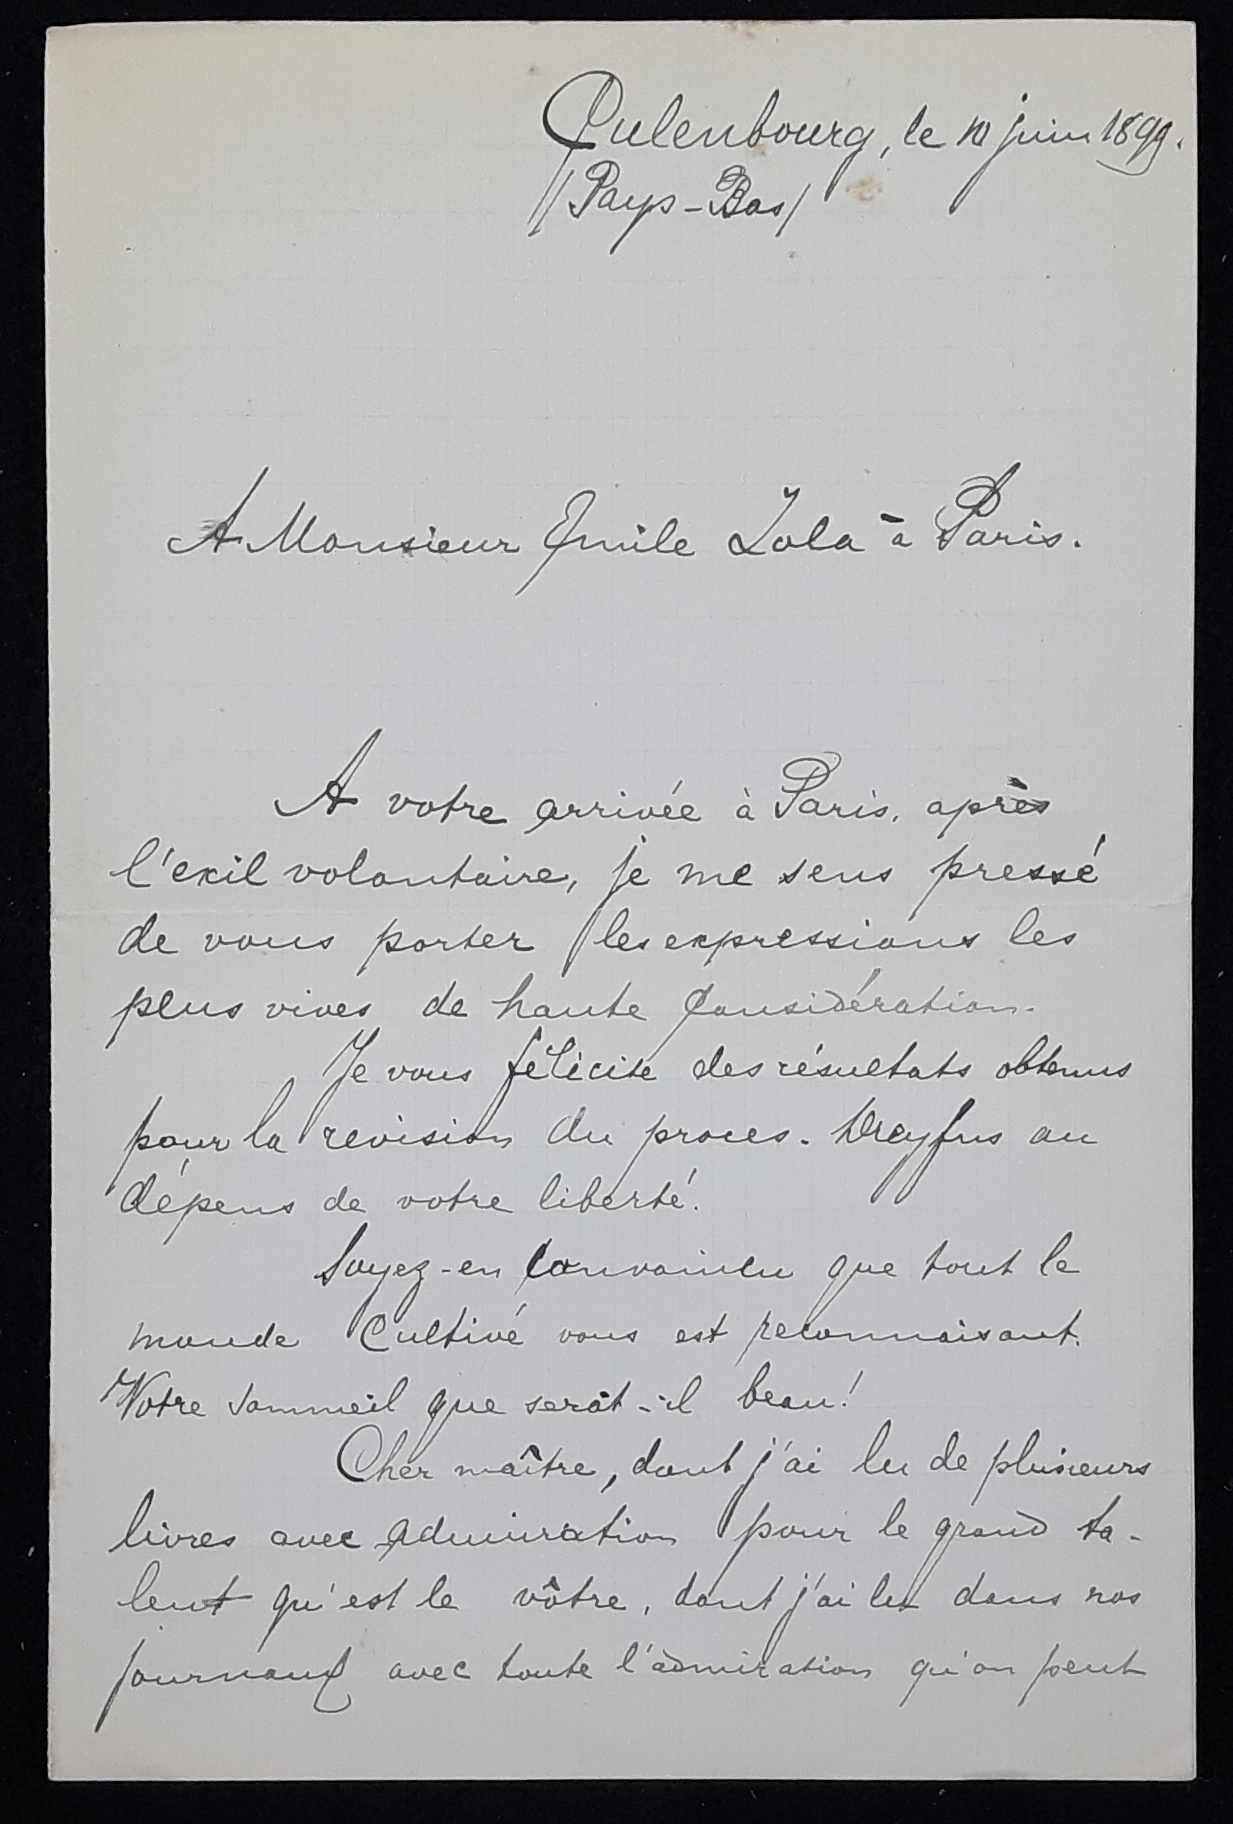 Culenbourg, le 10 juin 1899.
/Pays-Bas/
A Monsieur Emile Zola à Paris.
A votre arrivée à Paris, après
l'exil volontaire, je me sens pressé
de vous porter les expressions les
plus vives de haute Considération.
Je vous félicite des résultats obtenus
pour la revision du proces. Dreyfus au
dépens de votre liberté.
Soyez-en Convaincu que tout le
monde Cultivé vous est reconnaisant.
Votre sommeil que serat-il beau!
Cher maître, dont j'ai lu de plusieurs
livres avec admiration pour le grand ta-
lent qu'est le vôtre, dont j'ai lu dans nos
journaux avec toute l'admiration qu'on peut